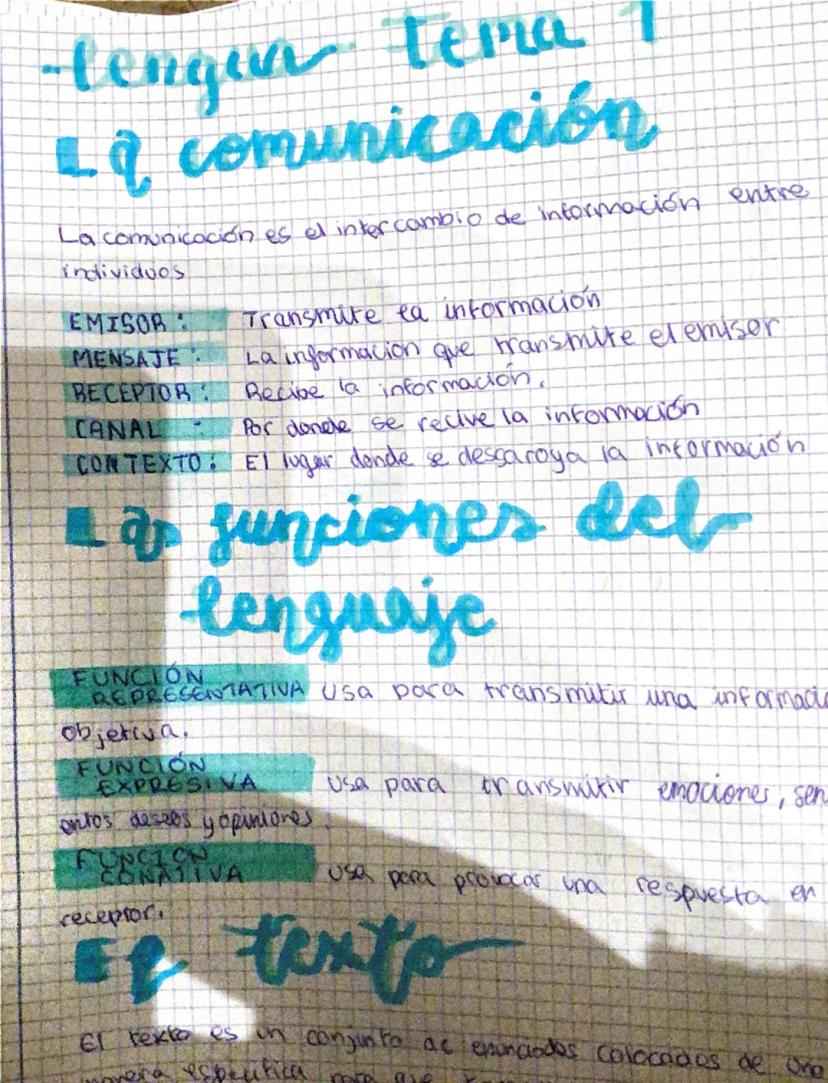 -lengua tema 1
La comunicación
La comunicación es el intercambio de información entre
individuos
EMISOR: Transmite la información
MENSAJE: La información que transmite el emisor
RECEPTOR: Recibe la información.
CANAL: Por donde se recive la información
CONTEXTO: El lugar donde se descaroya la información
Las funciones del
lenguaje
FUNCIÓN
REPRESENTATIVA usa para transmitir una informació
objetiva.
FUNCIÓN
EXPRESIVA usa para transmitir emociones, sen
entos deseos y opiniones.
FUNCIÓN
CONATIVA usa para provocar una respuesta en
receptor.
El texto
El texto es un conjunto de enunciados colocados de una
manera específica para que